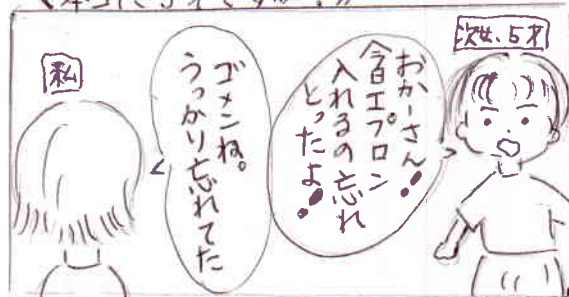 次女、5才
おかーさん
今日エプロン
入れるの忘れ
とったよ!!
私
ゴメンね。
うっかり忘れてた